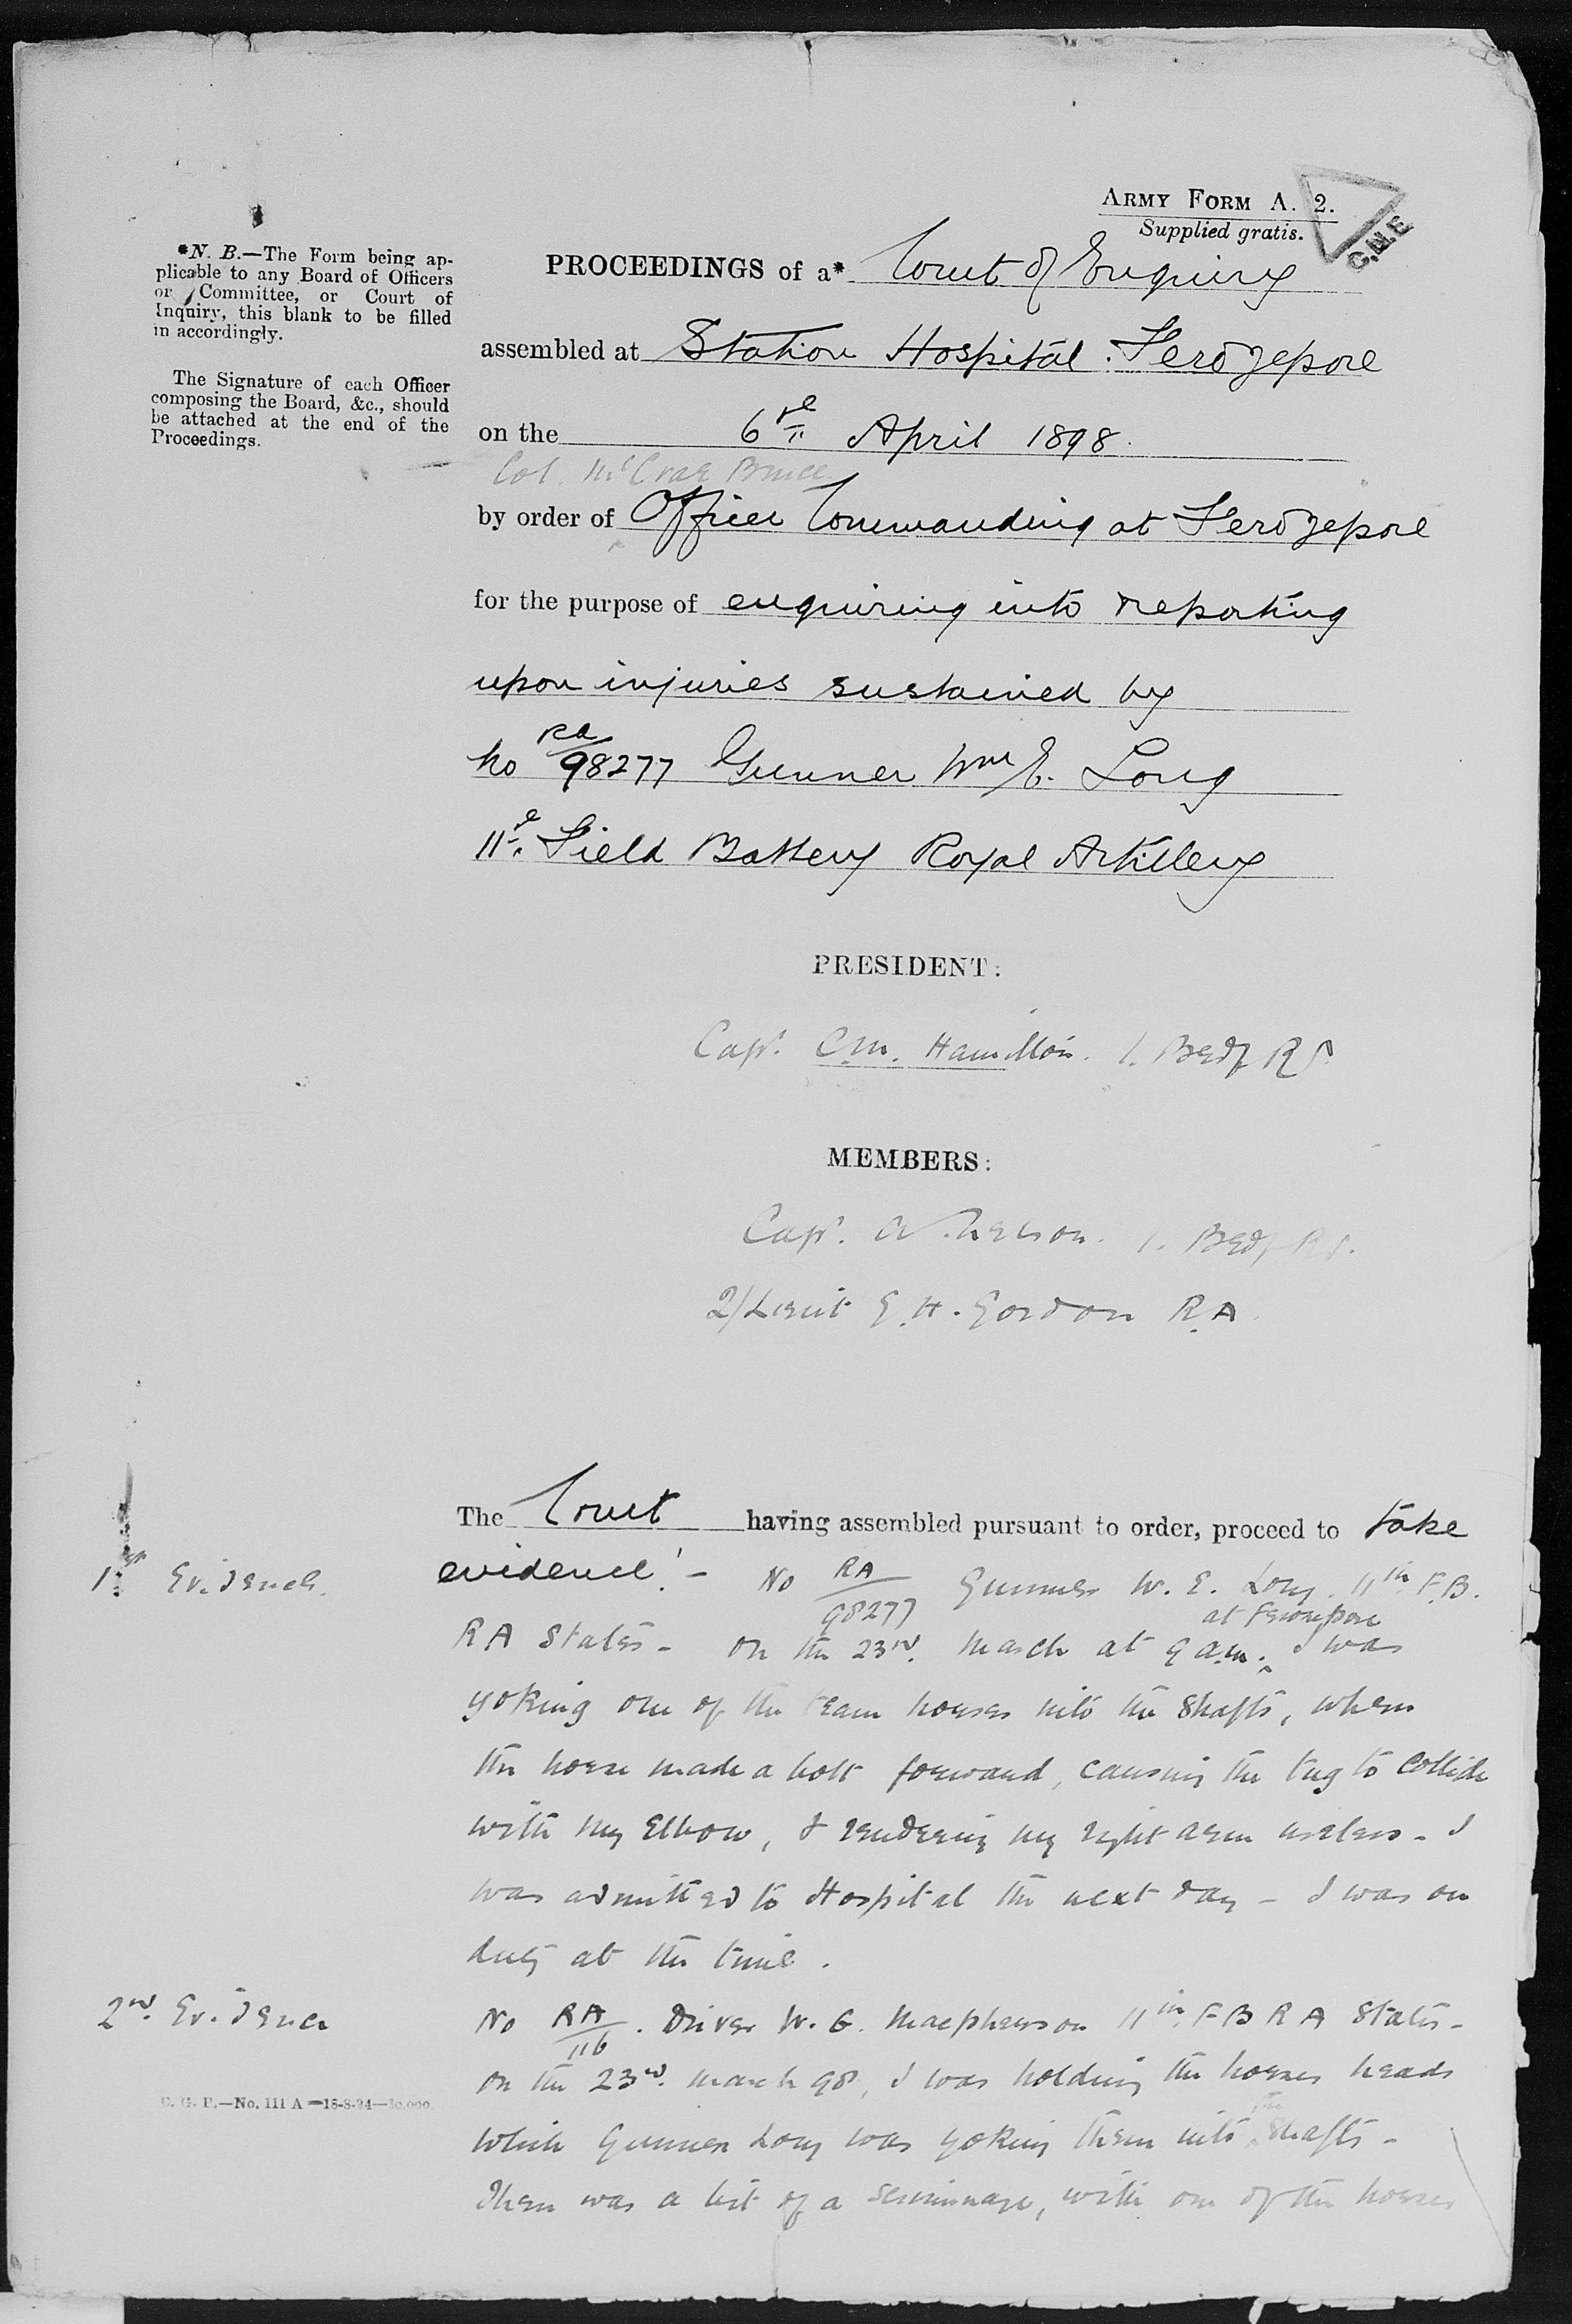 ARMY FORM A. 2.
Supplied gratis.
C.M.E
*N. B.—The Form being ap-
plicable to any Board of Officers
or Committee, or Court of
Inquiry, this blank to be filled
in accordingly.
The Signature of each Officer
composing the Board, &c., should
be attached at the end of the
Proceedings.
PROCEEDINGS of a* Court of Enquiry
assembled at Station Hospital. Ferozepore
on the 6th April 1898.
Col. McCrae Bruce
by order of Officer Commanding at Ferozepore
for the purpose of enquiring into & reporting
upon injuries sustained by
No RA/98277 Gunner Wm E. Long
11th Field Battery Royal Artillery
PRESIDENT:
Capt. C.M. Hamilton. 1. Bedf Rt.
MEMBERS:
Capt. A. Nelson. 1. Bedf Rt.
2/Lieut E.H. Gordon R.A.
The Court having assembled pursuant to order, proceed to take
evidence:-
1st Evidence.
No RA/98277 Gunner W. E. Long. 11th F.B.
at Ferozepore
RA States - On the 23rd. March at 9 a.m. I was
yoking one of the team horses into the shafts, when
the horse made a bolt forward, causing the tug to collide
with my elbow, & rendering my right arm useless - I
was admitted to Hospital the next day - I was on
duty at the time.
2nd. Evidence
No RA/116. Driver W. G. Macpherson 11th F B R A States -
On the 23rd. March 98, I was holding the horses heads
which Gunner Long was yoking them into the shafts -
There was a bit of a scrimmage, with one of the horses
G. P.—No. 111 A—18-8-94—10,000.